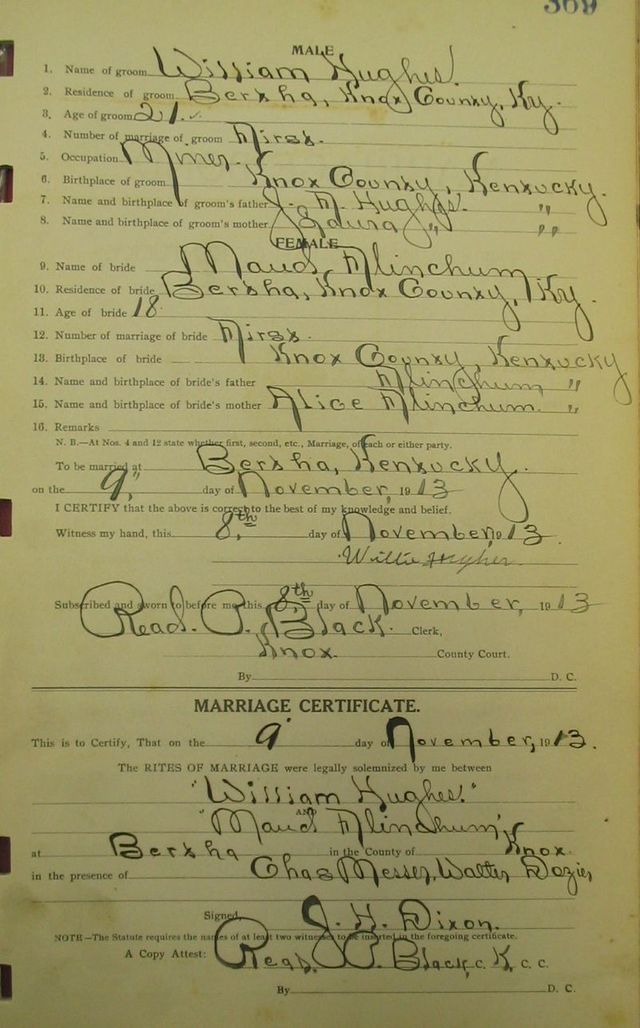 369
MALE
1. Name of groom William Hughes.
2. Residence of groom Bertha, Knox County, Ky.
3. Age of groom 21.
4. Number of marriage of groom First.
5. Occupation Miner.
6. Birthplace of groom Knox County, Kentucky.
7. Name and birthplace of groom's father J. M. Hughes. "
8. Name and birthplace of groom's mother " "
FEMALE
9. Name of bride Maud Flinchum
10. Residence of bride Bertha, Knox County, Ky.
11. Age of bride 18
12. Number of marriage of bride First.
13. Birthplace of bride Knox County, Kentucky
14. Name and birthplace of bride's father Flinchum "
15. Name and birthplace of bride's mother Alice Flinchum. "
16. Remarks
N. B.—At Nos. 4 and 12 state whether first, second, etc., Marriage, of each or either party.
To be married at Bertha, Kentucky.
on the 9" day of November, 1913
I CERTIFY that the above is correct to the best of my knowledge and belief.
Witness my hand, this 8th day of November, 1913.
Willie Hughes
Subscribed and sworn to before me this 8th day of November, 1913
Read. P. Black. Clerk,
Knox. County Court.
By D. C.
MARRIAGE CERTIFICATE.
This is to Certify, That on the 9" day of November, 1913.
The RITES OF MARRIAGE were legally solemnized by me between
"William Hughes."
AND
"Maud Flinchum"
at Bertha in the County of Knox.
in the presence of Chas Messer, Walter Dozier
Signed, J. H. Dixon.
NOTE—The Statute requires the names of at least two witnesses to be inserted in the foregoing certificate.
A Copy Attest: Read. P. Black, C. K. C. C.
By D. C.